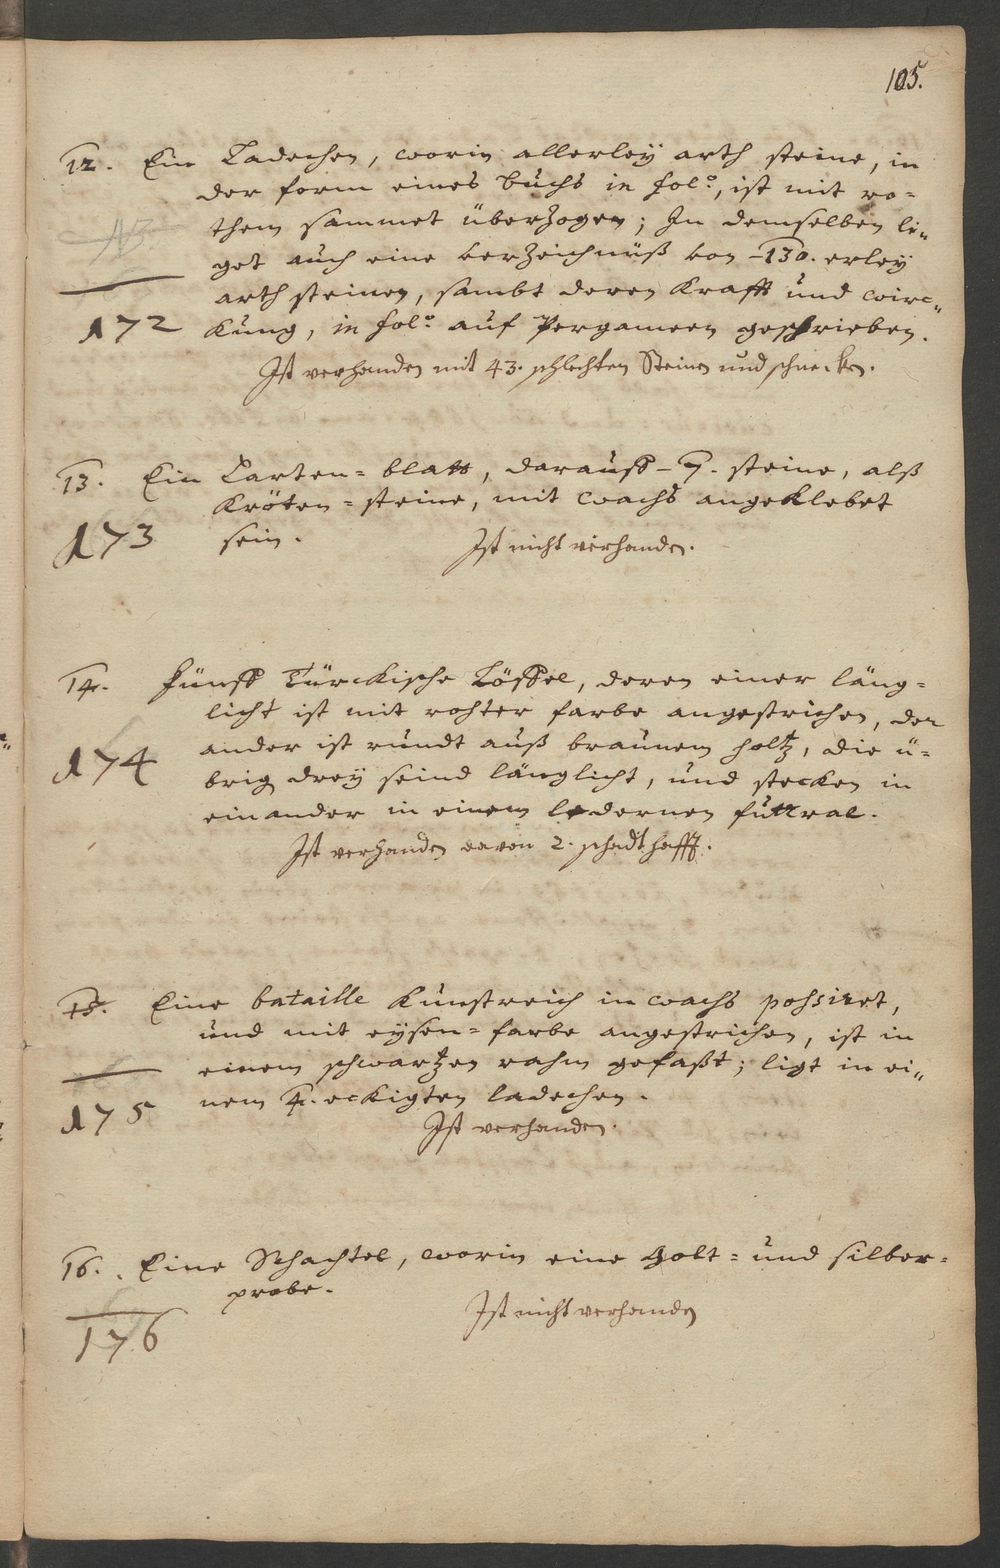 105.
12. Ein Ladechen, worin allerleÿ arth steine, in
der form eines buchs in fol:°, ist mit ro-
them sammet überzogen; In demselben li-
get auch eine verzeichnüß von -130. erleÿ
arth steinen, sambt deren krafft und wirc-
172 kung, in fol:° auf Pergameen geschrieben.
Ist verhanden mit 43. schlechten Steinen und schnecken.
13. Ein Carten-blatt, darauff -7. steine, alß
Kröten-steine, mit wachs angeklebet
173 sein. Ist nicht verhanden.
14. Fünff Türckische Löffel, deren einer läng-
licht ist mit rohter farbe angestrichen, der
174 ander ist rundt auß braunem holtz, die ü-
brig dreÿ seind länglicht, und stecken in
einander in einem ledernen futtral.
Ist verhanden davon 2. schadthafft.
15. Eine bataille kunstreich in wachs pohsiret,
und mit eÿsen-farbe angestrichen, ist in
einem schwartzen rahm gefaßt; ligt in ei-
175 nem 4. eckigten ladechen.
Ist verhanden.
16. Eine Schachtel, worin eine Golt- und silber-
probe.
176 Ist nicht verhanden